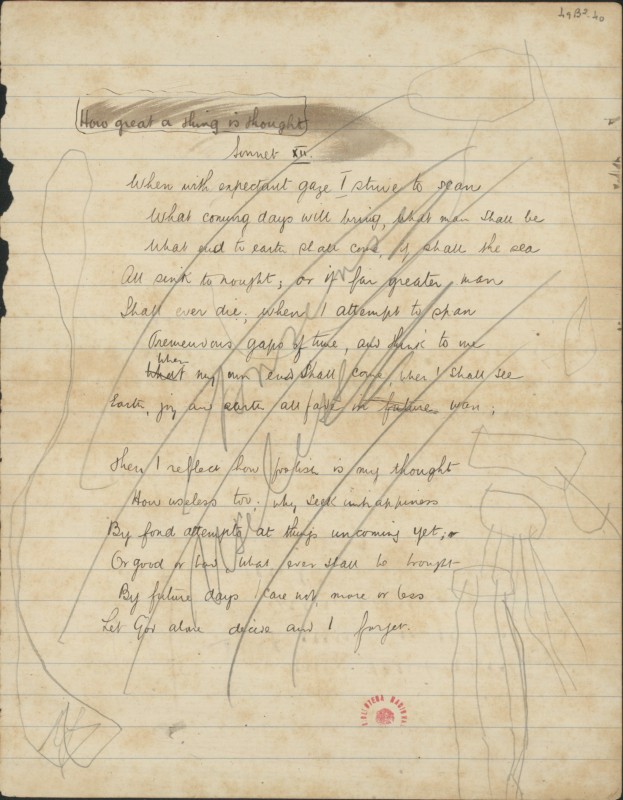 49B³-40
How great a thing is thought
Sonnet XII.
When with expectant gaze I strive to scan
What coming days will bring, what man shall be
What end to earth shall come, if shall the sea
All sink to nought; or if far greater man
Shall ever die; when I attempt to span
Tremenduous gaps of time, and think to me
When
What my own end shall come, when I shall see
Earth, joy and earth all fade in future wan;
Then I reflect how foolish is my thought
How useless too; why seek unhappiness
By fond attempts at things uncoming yet; or
Or good or bad, what ever shall be brought
By future days I care not, more or less
Let God alone decide and I forget.
BIBLIOTECA NACIONAL